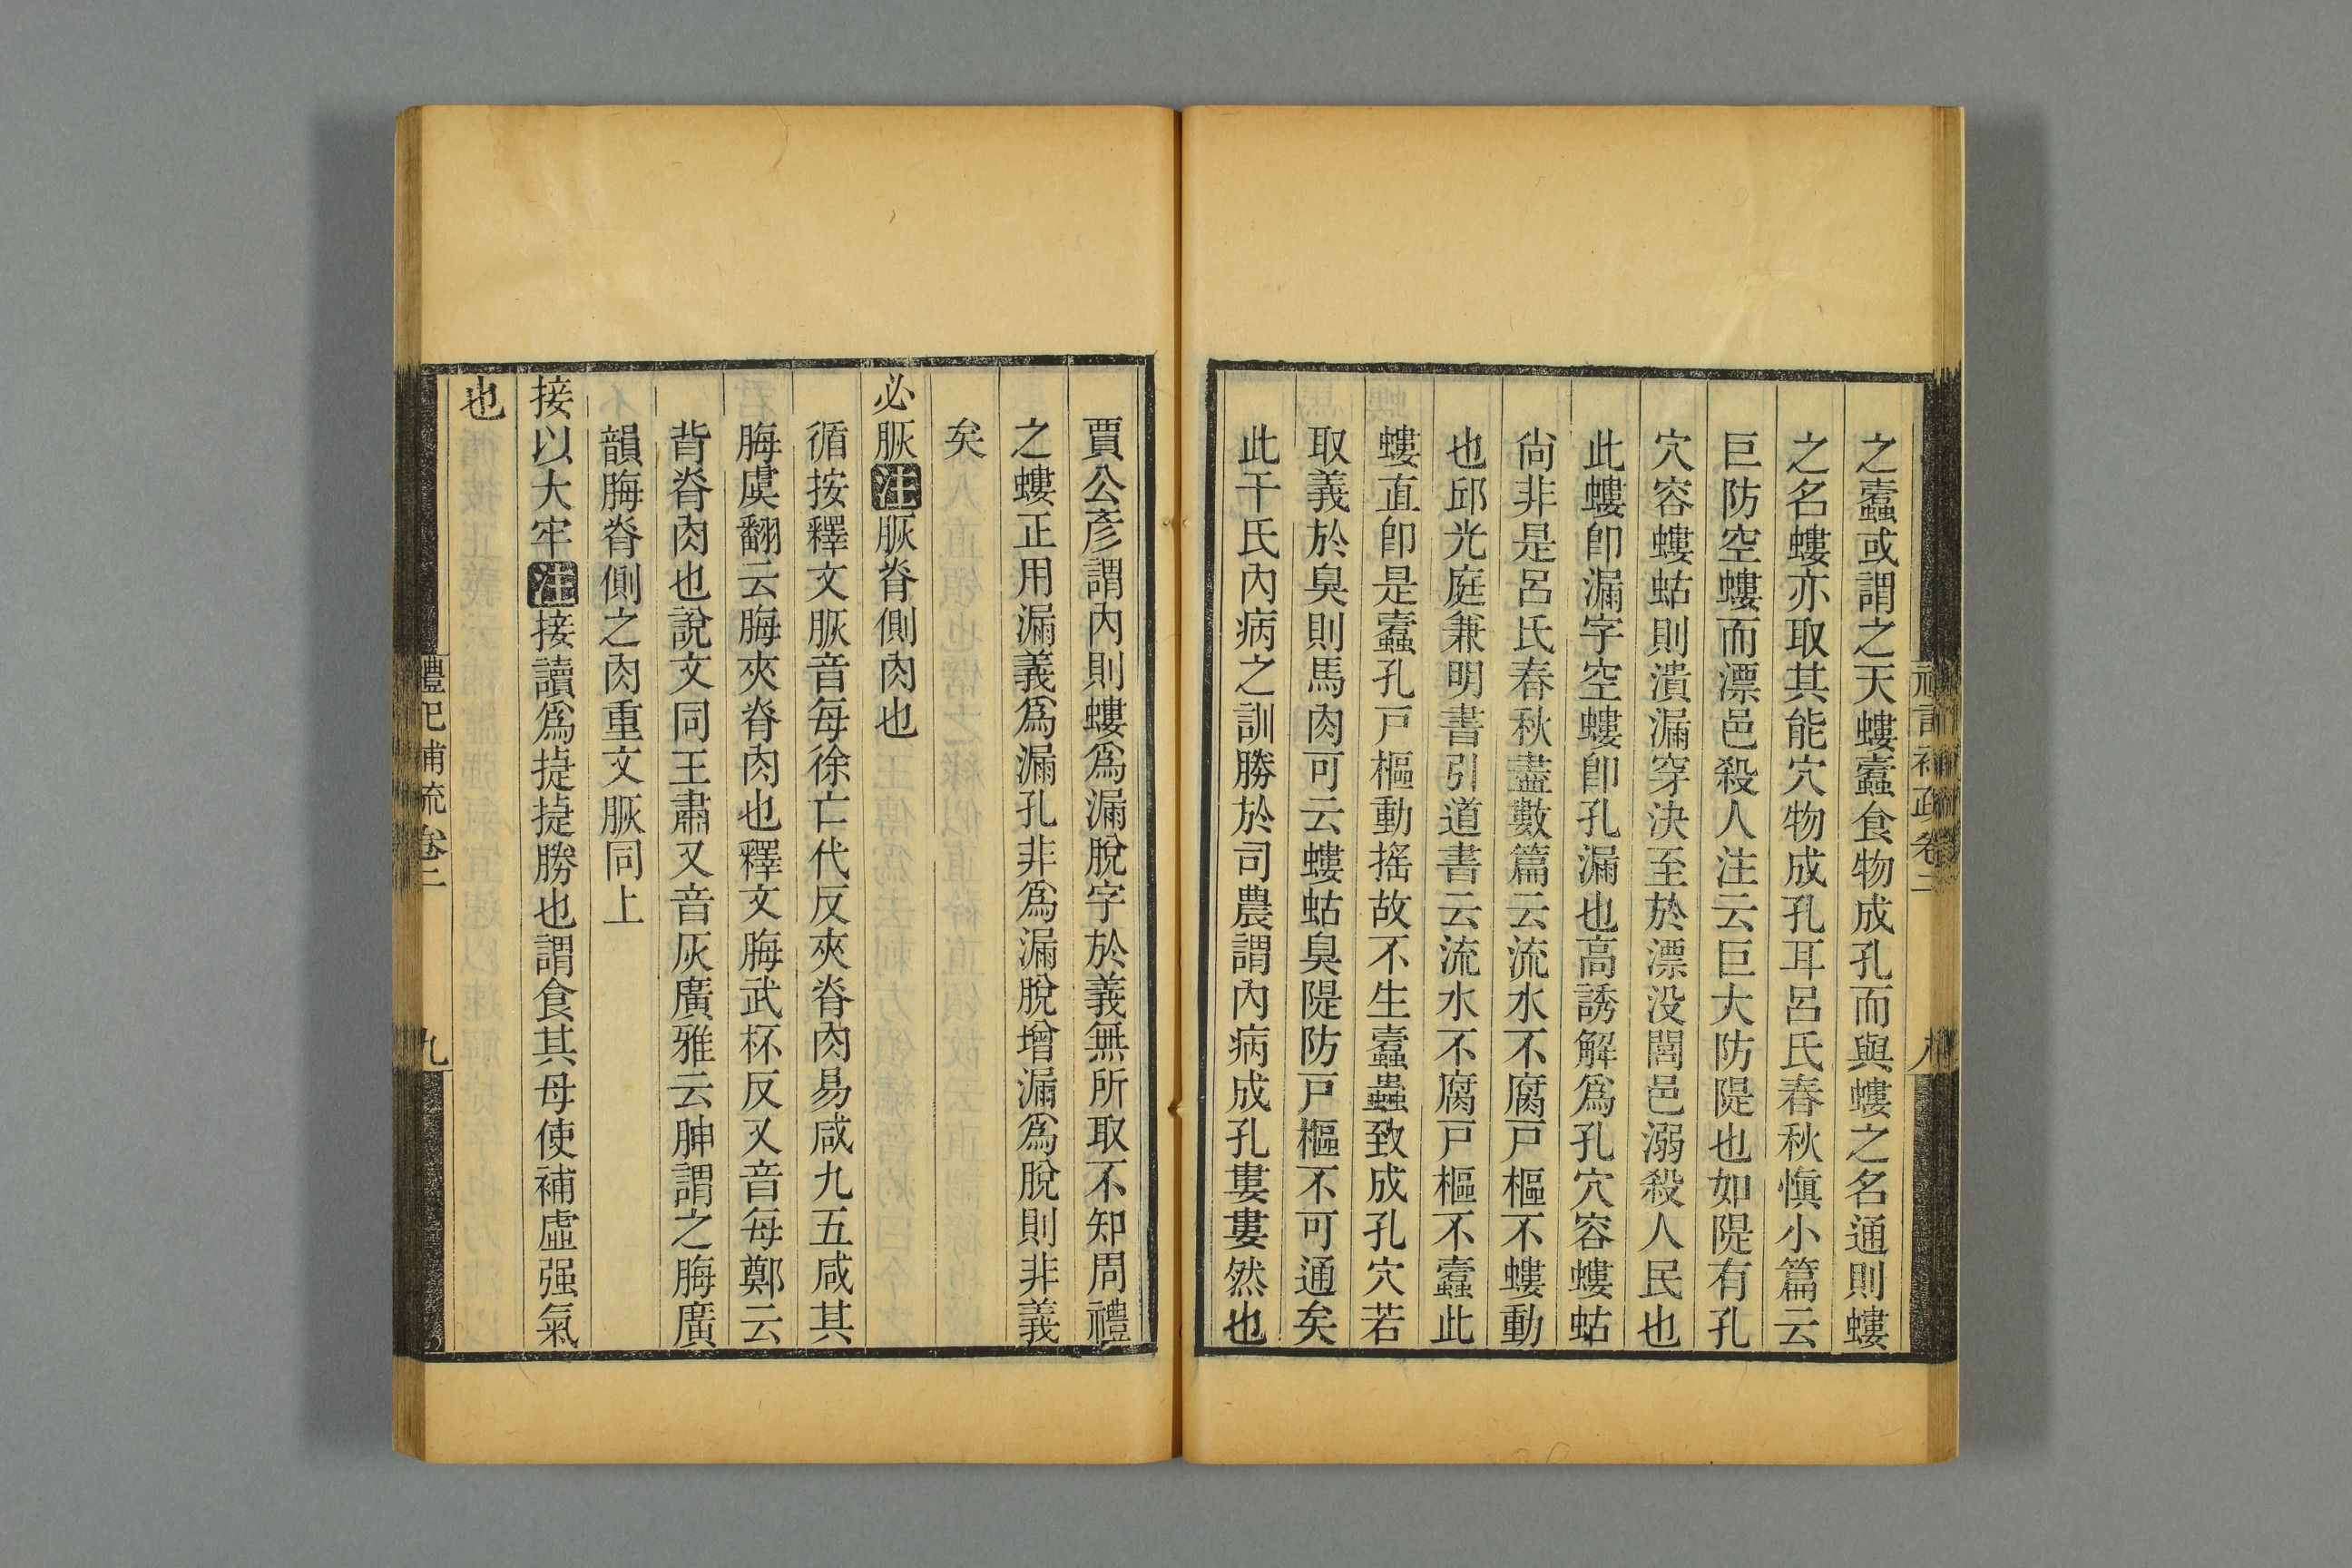 之蠹或謂之天螻蠹食物成孔而與螻之名通則螻
之名螻亦取其能穴物成孔耳呂氏春秋愼小篇云
巨防空螻而漂邑殺人注云巨大防隄也如隄有孔
穴容螻蛄則潰漏穿決至於漂没閭邑溺殺人民也
此螻卽漏字空螻卽孔漏也高誘解爲孔穴容螻蛄
尙非是呂氏春秋盡數篇云流水不腐戸樞不螻動
也邱光庭兼明書引道書云流水不腐戸樞不蠹此
螻直卽是蠹孔戸樞動摇故不生蠹蟲致成孔穴若
取義於臭則馬肉可云螻蛄臭隄防戸樞不可通矣
此干氏內病之訓勝於司農謂內病成孔婁婁然也
賈公彥謂內則螻爲漏脫字於義無所取不知周禮
之螻正用漏義爲漏孔非爲漏脫增漏爲脫則非義
矣
必脄注脄脊側肉也
循按釋文脄音每徐亡代反夾脊肉易咸九五咸其
脢虞翻云脢夾脊肉也釋文脢武杯反又音每鄭云
背脊肉也說文同王肅又音灰廣雅云胂謂之脢廣
韻脢脊側之肉重文脄同上
接以大牢注接讀爲捷捷勝也謂食其母使補虛强氣
也
禮記補疏卷二
九